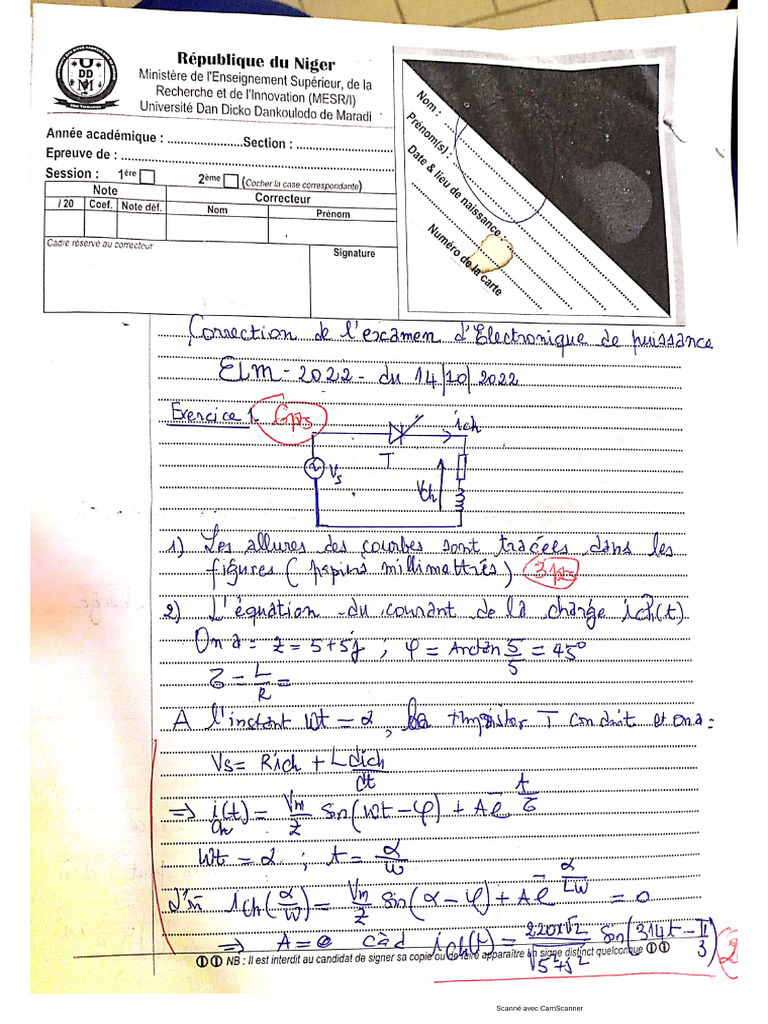 République du Niger
Ministère de l'Enseignement Supérieur, de la
Recherche et de l'Innovation (MESR/I)
Université Dan Dicko Dankoulodo de Maradi
U
DD
M
Année académique : ...................... Section : ..........................
Epreuve de : ..........................
Session : 1ère 2ème (Cocher la case correspondante)
Note Correcteur
/ 20 Coef. Note déf. Nom Prénom
Cadre réservé au correcteur Signature
Nom :
Prénom(s) :
Date & lieu de naissance :
Numéro de la carte
Correction de l'examen d'Electronique de puissance
ELM - 2022 - du 14/10/2022
Exercice 1 6pts
ich
T
Vs
Vch
1) Les allures des courbes sont tracées dans les
figures (papiers millimettrés) 3pts
2) L'équation du courant de la charge ich(t)
On a = z = 5+5j ; φ = Arctan 5/5 = 45°
τ = L/R =
A l'instant wt = α, le thyristor T conduit et on a =
Vs = Rich + L dich/dt
=> ich(t) = Vm/z sin(wt-φ) + Ae^-t/τ
wt = α ; t = α/w
d'où ich(α/w) = Vm/z sin(α-φ) + Ae^-α/τw = 0
=> A = 0 càd ich(t) = 220x√2/√5²+5² sin(314t - π/3) 2
NB : Il est interdit au candidat de signer sa copie ou de faire apparaître un signe distinct quelconque
Scanné avec CamScanner